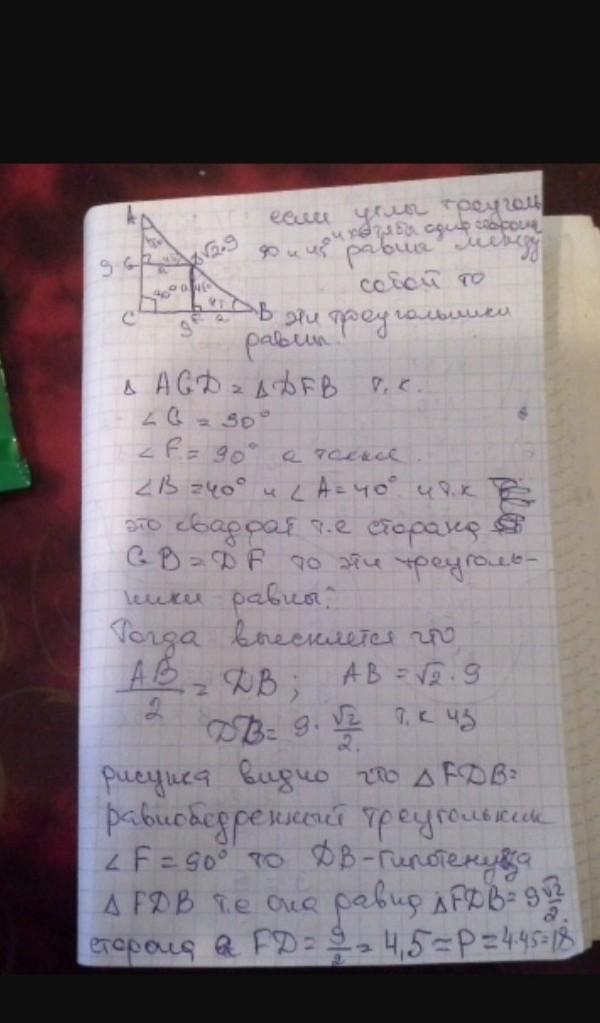 A
если углы треуголь
√2·9
и хотябы одна сторона
90 и 45° равны между
9 G
45°
a
45°
собой то
C
90°
a
45°
45
a
B эти треугольники
9
F
равны.
Δ AGD = Δ DFB т.к.
∠G = 90°
∠F = 90° а также.
∠B = 40° и ∠A = 40° и т.к
это квадрат т.е сторана
GB = DF то эти треуголь-
ники равны.
Тогда выесняется что,
AB/2 = DB; AB = √2·9
DB = 9·√2/2. т.к из
рисунка видно что Δ FDB =
равнобедренный треугольник
∠F = 90° то DB - гипотенуза
Δ FDB т.е она равна Δ FDB = 9√2/2.
сторона a FD = 9/2 = 4,5 = P = 4·45 = 18